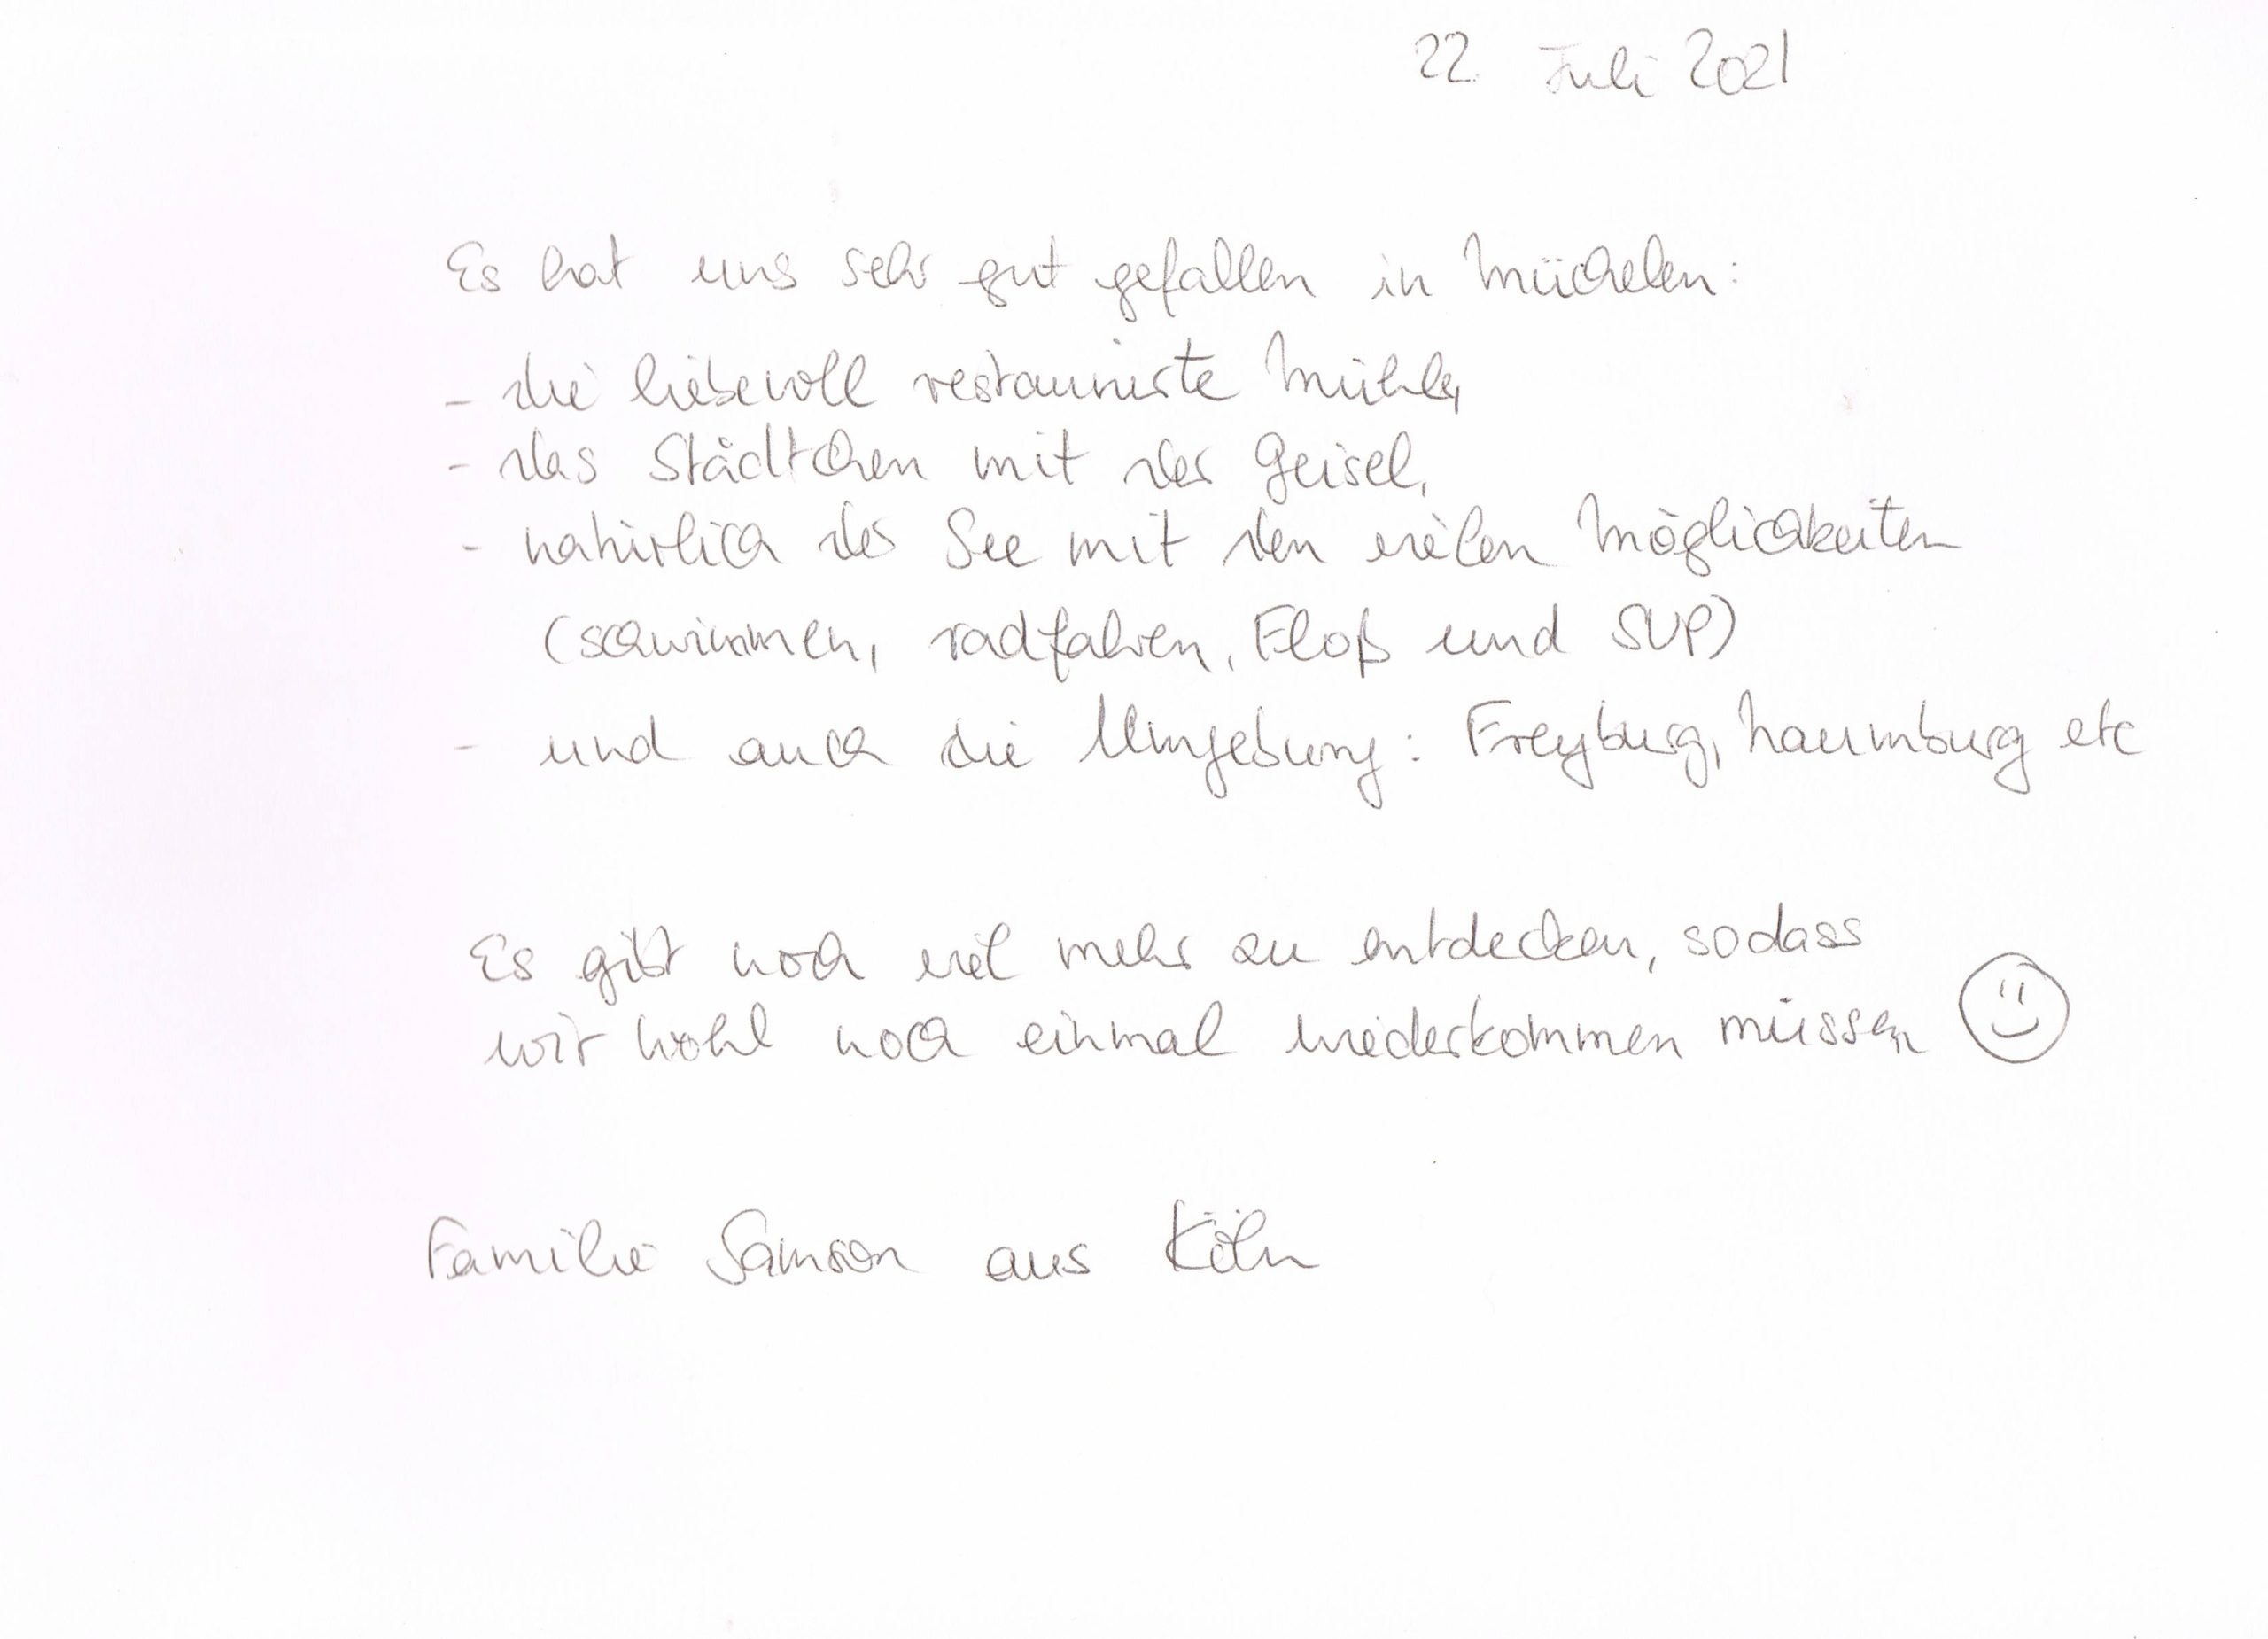 22 Juli 2021
Es hat uns sehr gut gefallen in Mücheln:
- die liebevoll restaurierte Mühle,
- das Städtchen mit der Geisel,
- natürlich der See mit den vielen Möglichkeiten
(schwimmen, radfahren, Floß und SUP)
- und auch die Umgebung: Freyburg, Naumburg etc
Es gibt noch viel mehr zu entdecken, sodass
wir wohl noch einmal wiederkommen müssen
Familie Samson aus Köln